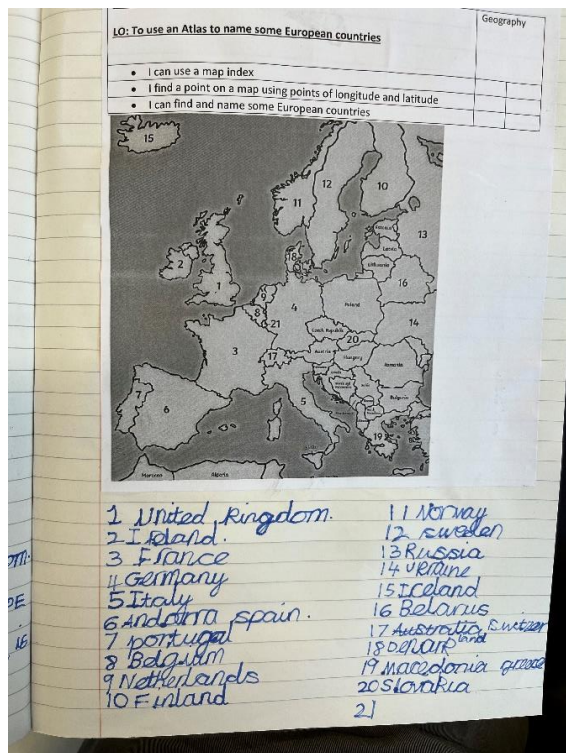 Geography
LO: To use an Atlas to name some European countries
• I can use a map index
• I find a point on a map using points of longitude and latitude
• I can find and name some European countries
15
12
10
11
13
Latvia
Lithuania
18
2
16
1
9
4
Poland
8
14
21
Czech Republic
20
3
17
Austria
Hungary
Romania
7
6
5
Bulgaria
19
Morocco
Algeria
1 United kingdom.
2 Ireland.
3 France
4 Germany
5 Italy
6 Andorra spain.
7 portugal
8 Belgium
9 Netherlands
10 Finland
11 Norway
12 sweden
13 Russia
14 Ukraine
15 Iceland
16 Belarus
17 Australia switzer
land
18 Denark
19 Macedonia greece
20 Slovakia
21